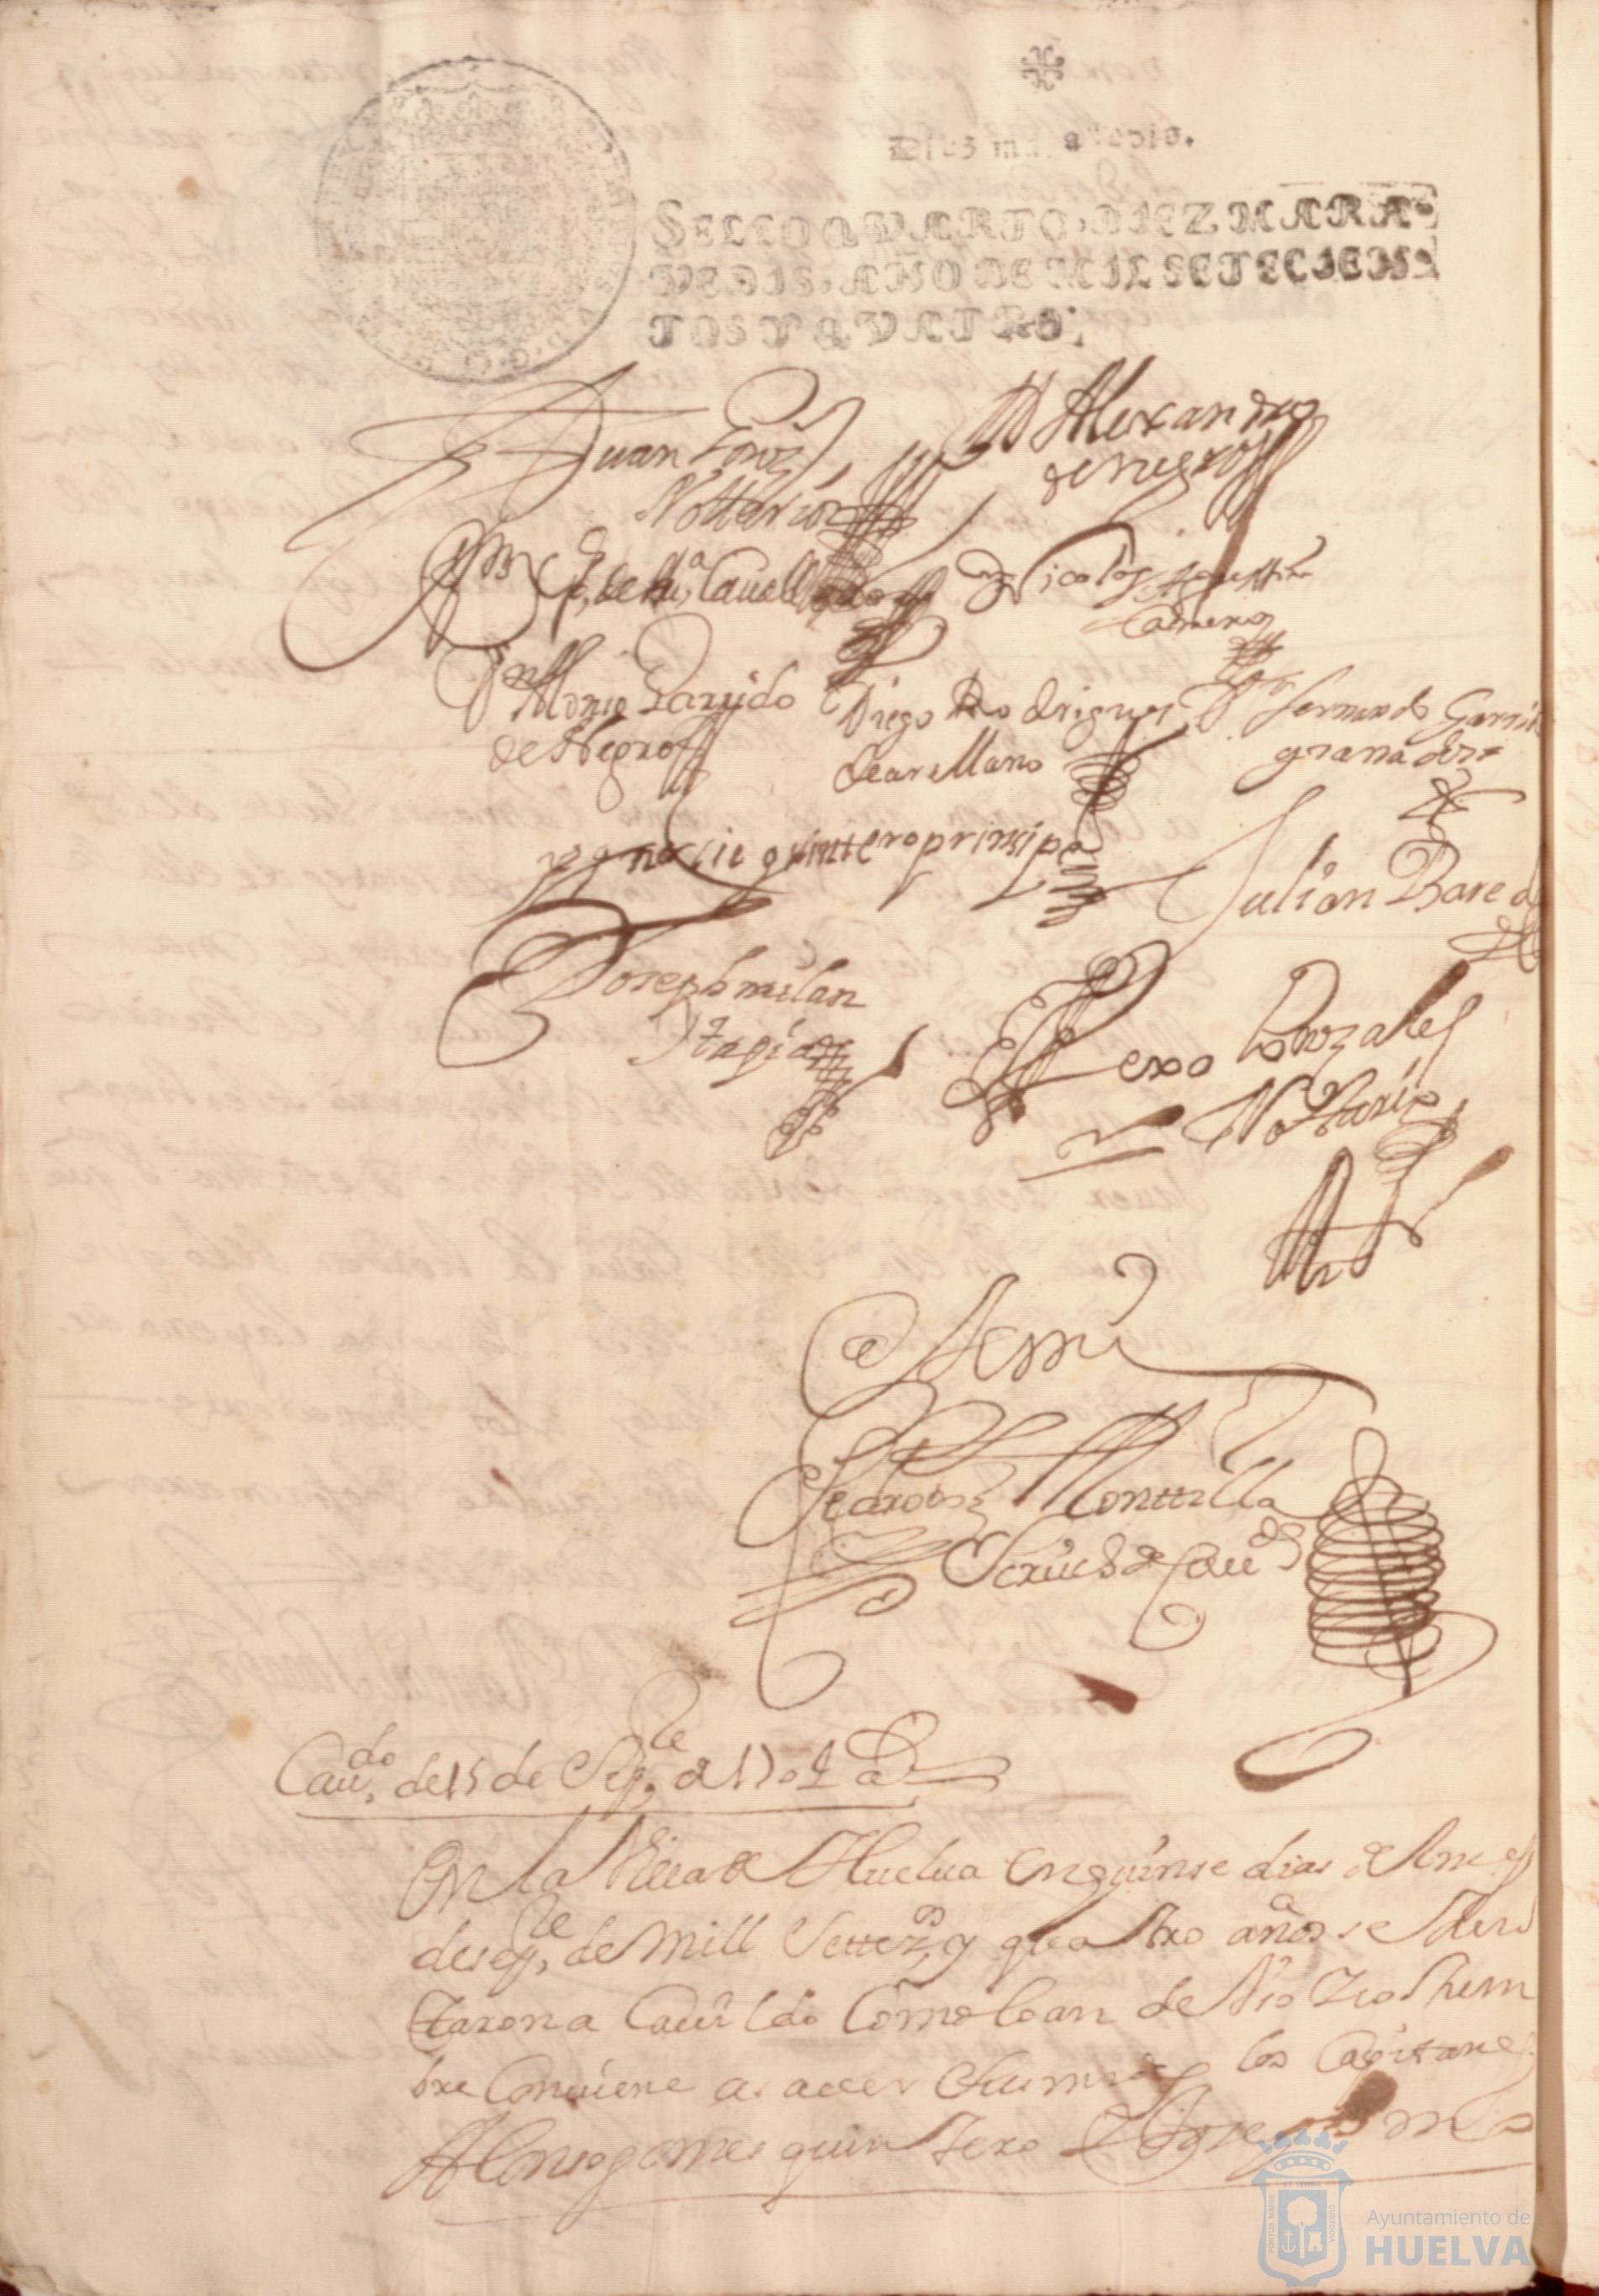 Diez mrs
SELLO QVARTO, DIEZ MARA-
VEDIS, AÑO DE MIL SETECIEN-
TOS Y QVATRO.
Juan Gonz
Nottario
D Alexandro
de negro
de Cauell
Nicolas Agustin
Cadmero
Dn Alonso Garrido
de Negro
Diego Rodrigues
de arellano
Dn fernando Garsia
granado
ygnacio quintero prinsipe
Julian Bare
Joseph milan
tapia
Pexo Gonzales
Nottario
Ante mi
Pedro Monttilla
Scriu de Cau do
Cau.do de 15 de Sep.re de 1704 a
En la Villa de Huelua en quinse dias del mes
de sep.re de mill Settez.os y quatro años se Jun
taron a Cauildo Como lo an de Vso Y costum
bre Conuiene a sauer Sus mrds los Capitanes
Alonso gomes quintero Y Joseph
Ayuntamiento de
HUELVA